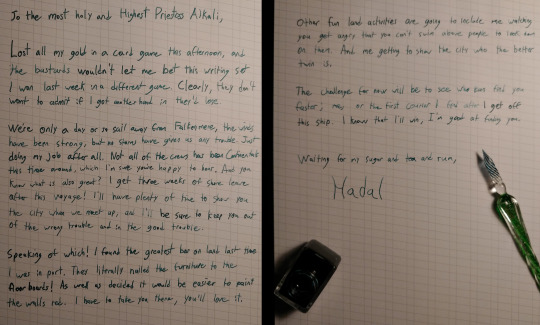 To the most holy and Highest Priestess Alkali,
Lost all my gold in a card game this afternoon, and
the bastards wouldn't let me bet this writing set
I won last week in a different game. Clearly, they don't
want to admit if I got another hand in they'd lose.
We're only a day or so sail away from the winds
have been strong, but no storms have given us any trouble. Just
doing my job after all. Not all of the crews has been
this time around, which I'm sure you're happy to hear. And you
know what is also great? I get three weeks of shore leave
after this voyage! I'll have plenty of time to show you
the city when we meet up, and I'll be sure to keep you out
of the wrong trouble and in the good trouble.
Speaking of which! I found the greatest bar on land last time
I was in port. They literally nailed the furniture to the
floorboards! As well as decided it would be easier to paint
the walls red. I have to take you there, you'll love it.
Other fun land activities are going to include me watching
you get angry that you can't swim above people to look down
on them. And me getting to show the city who the better
twin is.
The challenge for now will be to see who can find you
faster; me, or the first courier I find after I get off
this ship. I know that I'll win, I'm good at finding you.
Waiting for my sugar and tea and rum,
Hadal